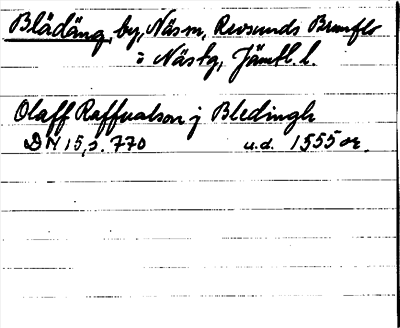 Blädäng, by, Näs sn, Revsunds Brunflo
o Näs tg, Jämtl. l.
Olaff Raffualson j Bledingh
DN 15, s. 770 u.d. 1555 or.